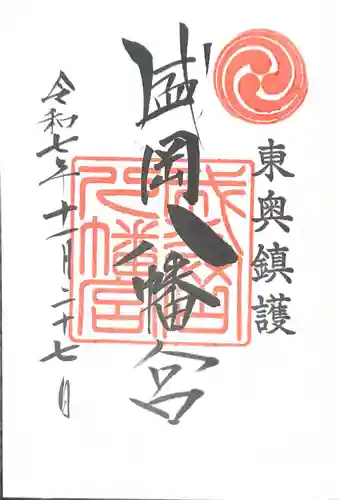 東奥鎮護
盛岡八幡宮
令和七年十一月二十七日
盛岡八幡宮